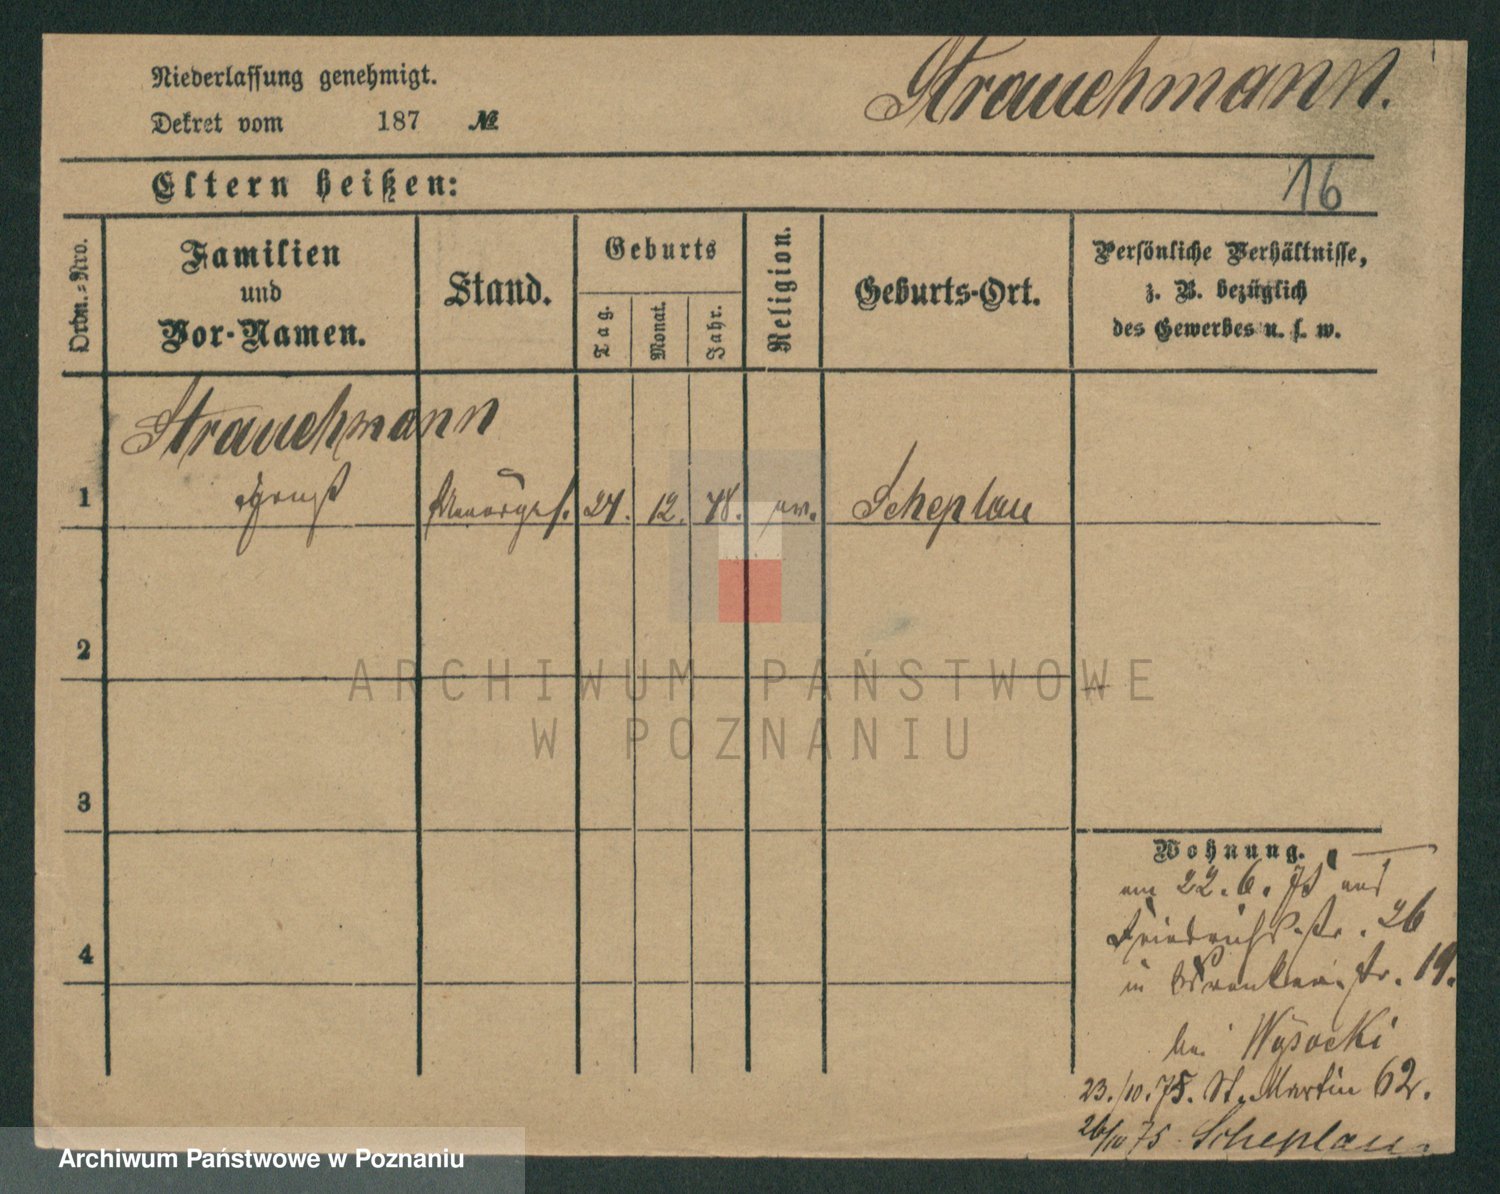 Niederlassung genehmigt.
Strauchmann.
Dekret vom 187 №
Eltern heißen:
16
Ordn.-Nro.
Familien
und
Vor-Namen.
Stand.
Geburts
Tag.
Monat.
Jahr.
Religion.
Geburts-Ort.
Persönliche Verhältnisse,
z. B. bezüglich
des Gewerbes u. s. w.
Strauchmann
1 24. 12. 48. ev. Scheplau
2
3
4
Wohnung.
am 22. 6. 75 aus
Friedrichstr. 26
in str. 19.
bei Wysocki
23./10. 75. St. Martin 62.
26/10 75 Scheplau.
ARCHIWUM PAŃSTWOWE
W POZNANIU
Archiwum Państwowe w Poznaniu